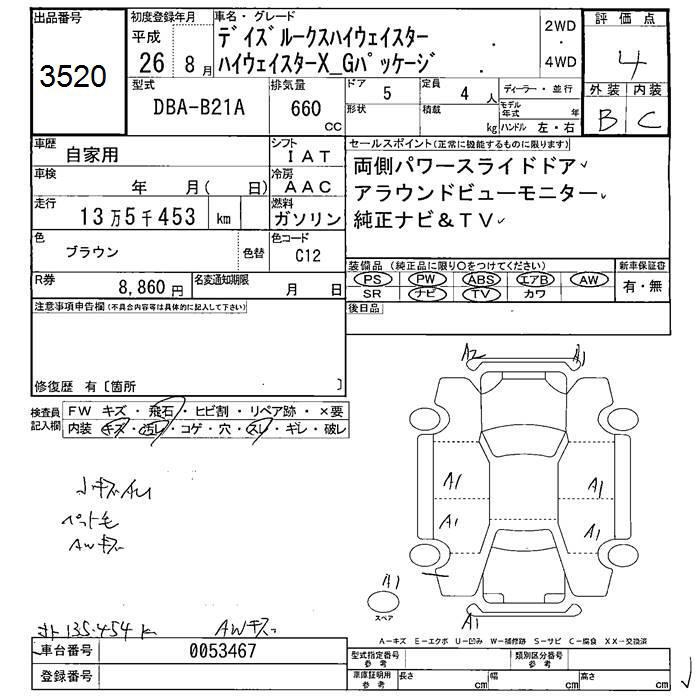 出品番号
3520
初度登録年月
平成
26 8月
車名・グレード
デイズルークスハイウェイスター
ハイウェイスターX_Gパッケージ
2WD
・
4WD
評価点
4
外装 内装
B C
型式
DBA-B21A
排気量
660
cc
ドア
5
定員
4 人
形状
積載
kg
ディーラー・並行
モデル年式 年
ハンドル 左・右
車歴
自家用
シフト
IAT
車検
年 月( 日)
冷房
AAC
走行
13万5千453 km
燃料
ガソリン
色
ブラウン
色替
色コード
C12
R券
8,860円
名変通知期限
月 日
セールスポイント(正常に機能するものに限ります)
両側パワースライドドア
アラウンドビューモニター
純正ナビ&TV
装備品(純正品に限り○をつけてください)
PS PW ABS エアB AW
SR ナビ TV カワ
新車保証書
有・無
後日品
注意事項申告欄(不具合内容等は具体的に記入して下さい)
修復歴 有〔箇所 〕
検査員
記入欄
FW キズ・飛石・ヒビ割・リペア跡・×要
内装 キズ・汚レ・コゲ・穴・スレ・ギレ・破レ
ペット毛
AWキズ
A2 A1
A1 A1
A1 A1
A1
スペア
A1
135.454 k AWキズ
A-キズ E-エクボ U-凹み W-補修跡 S-サビ C-腐食 XX-交換済
車台番号
0053467
登録番号
型式指定番号
参考
類別区分番号
参考
車庫証明用
参考
長さ cm
幅 cm
高さ cm